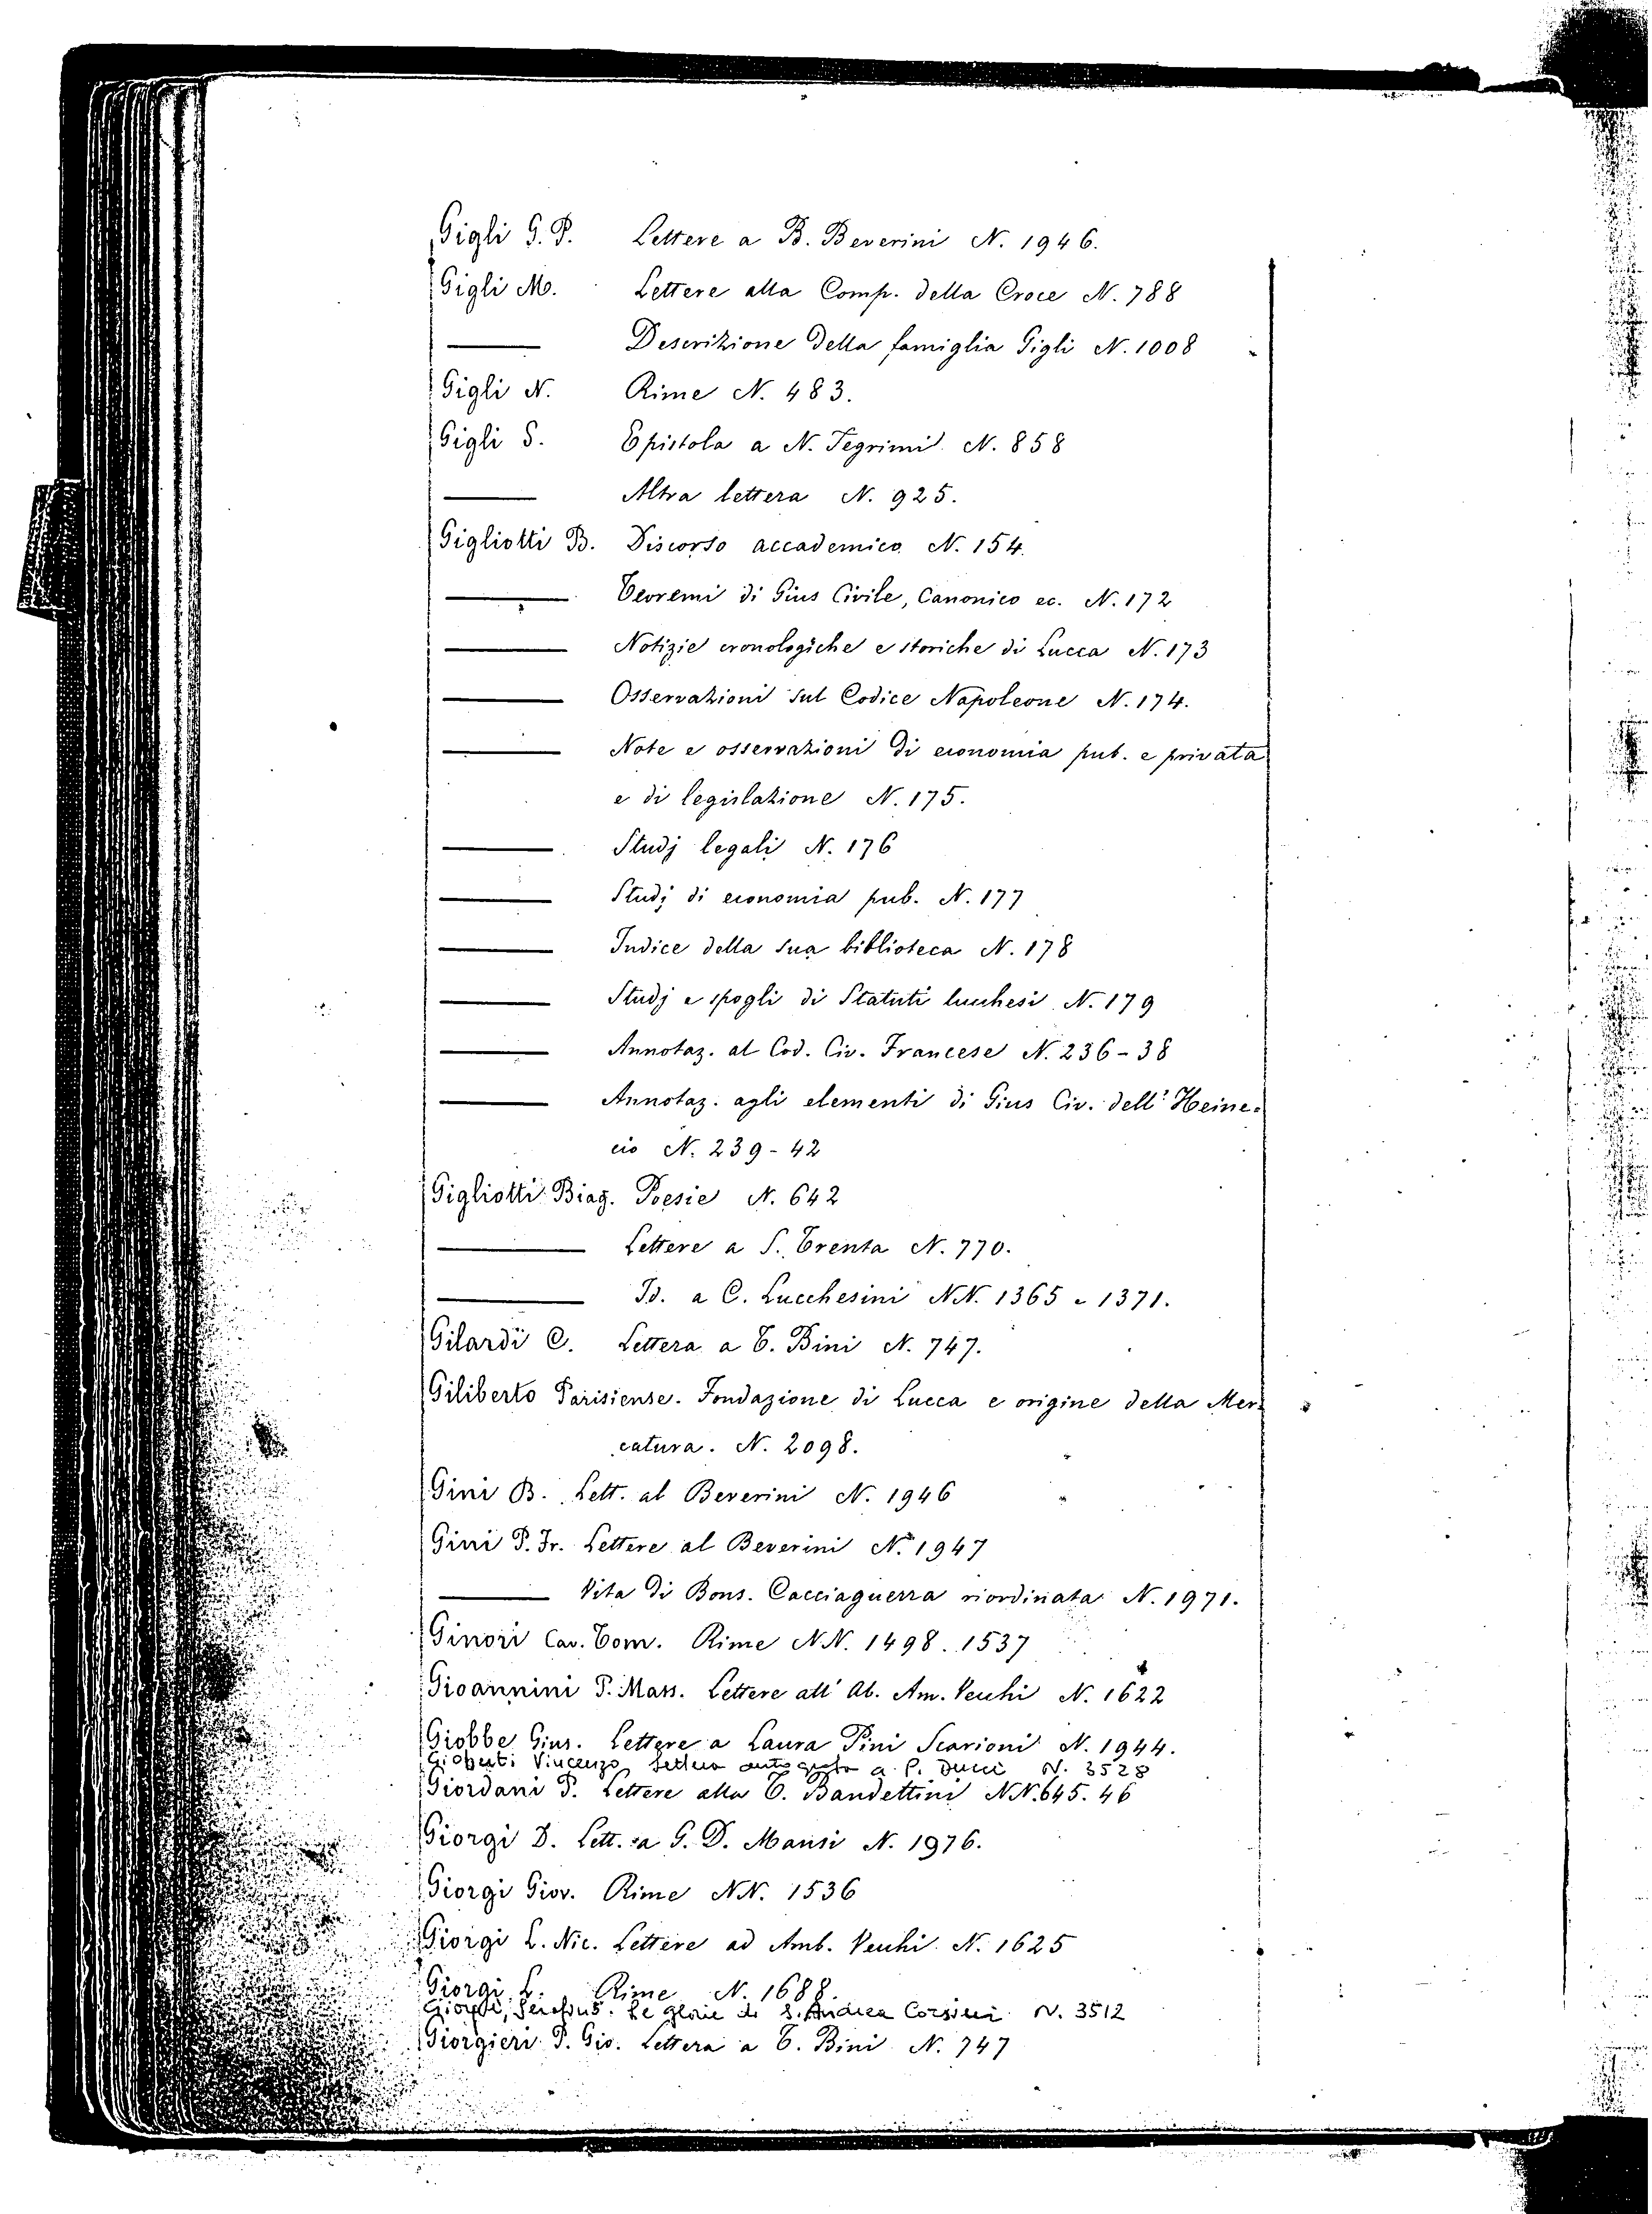 Gigli G. P. Lettere a B. Beverini N. 1946.
Gigli M. Lettere alla Comp. della Croce N. 788
——— Descrizione della famiglia Gigli N. 1008
Gigli N. Rime N. 483.
Gigli S. Epistola a N. Tegrimi N. 858
——— Altra lettera N. 925.
Gigliotti B. Discorso accademico N. 154.
——— Teoremi di Gius Civile, Canonico ec. N. 172
——— Notizie cronologiche e storiche di Lucca N. 173
——— Osservazioni sul Codice Napoleone N. 174.
——— Note e osservazioni di economia pub. e privata
e di legislazione N. 175.
——— Studj legali N. 176
——— Studj di economia pub. N. 177
——— Indice della sua biblioteca N. 178
——— Studj e spogli di Statuti lucchesi N. 179
——— Annotaz. al Cod. Civ. Francese N. 236-38
——— Annotaz. agli elementi di Gius Civ. dell' Heine-
cio N. 239-42
Gigliotti Biag. Poesie N. 642
——— Lettere a S. Trenta N. 770.
——— Id. a C. Lucchesini NN. 1365 e 1371.
Gilardi C. Lettera a T. Bini N. 747.
Giliberto Parisiense. Fondazione di Lucca e origine della Mer-
catura. N. 2098.
Gini B. Lett. al Beverini N. 1946
Gini P. Fr. Lettere al Beverini N. 1947
——— Vita di Bons. Cacciaguerra riordinata N. 1971.
Ginori Cav. Tom. Rime NN. 1498. 1537
Gioannini P. Mass. Lettere all' Ab. Am. Vecchi N. 1622
Giobbe Gius. Lettere a Laura Pini Scarioni N. 1944.
Gioberti Vincenzo, Lettera autografa a P. Ducci N. 3528
Giordani P. Lettere alla T. Bandettini NN. 645. 46
Giorgi D. Lett. a G. D. Mansi N. 1976.
Giorgi Giov. Rime NN. 1536
Giorgi L. Nic. Lettere ad Amb. Vecchi N. 1625
Giorgi L. Rime N. 1688.
Le glorie di S. Andrea Corsini N. 3512
Giorgieri P. Gio. Lettera a T. Bini N. 747